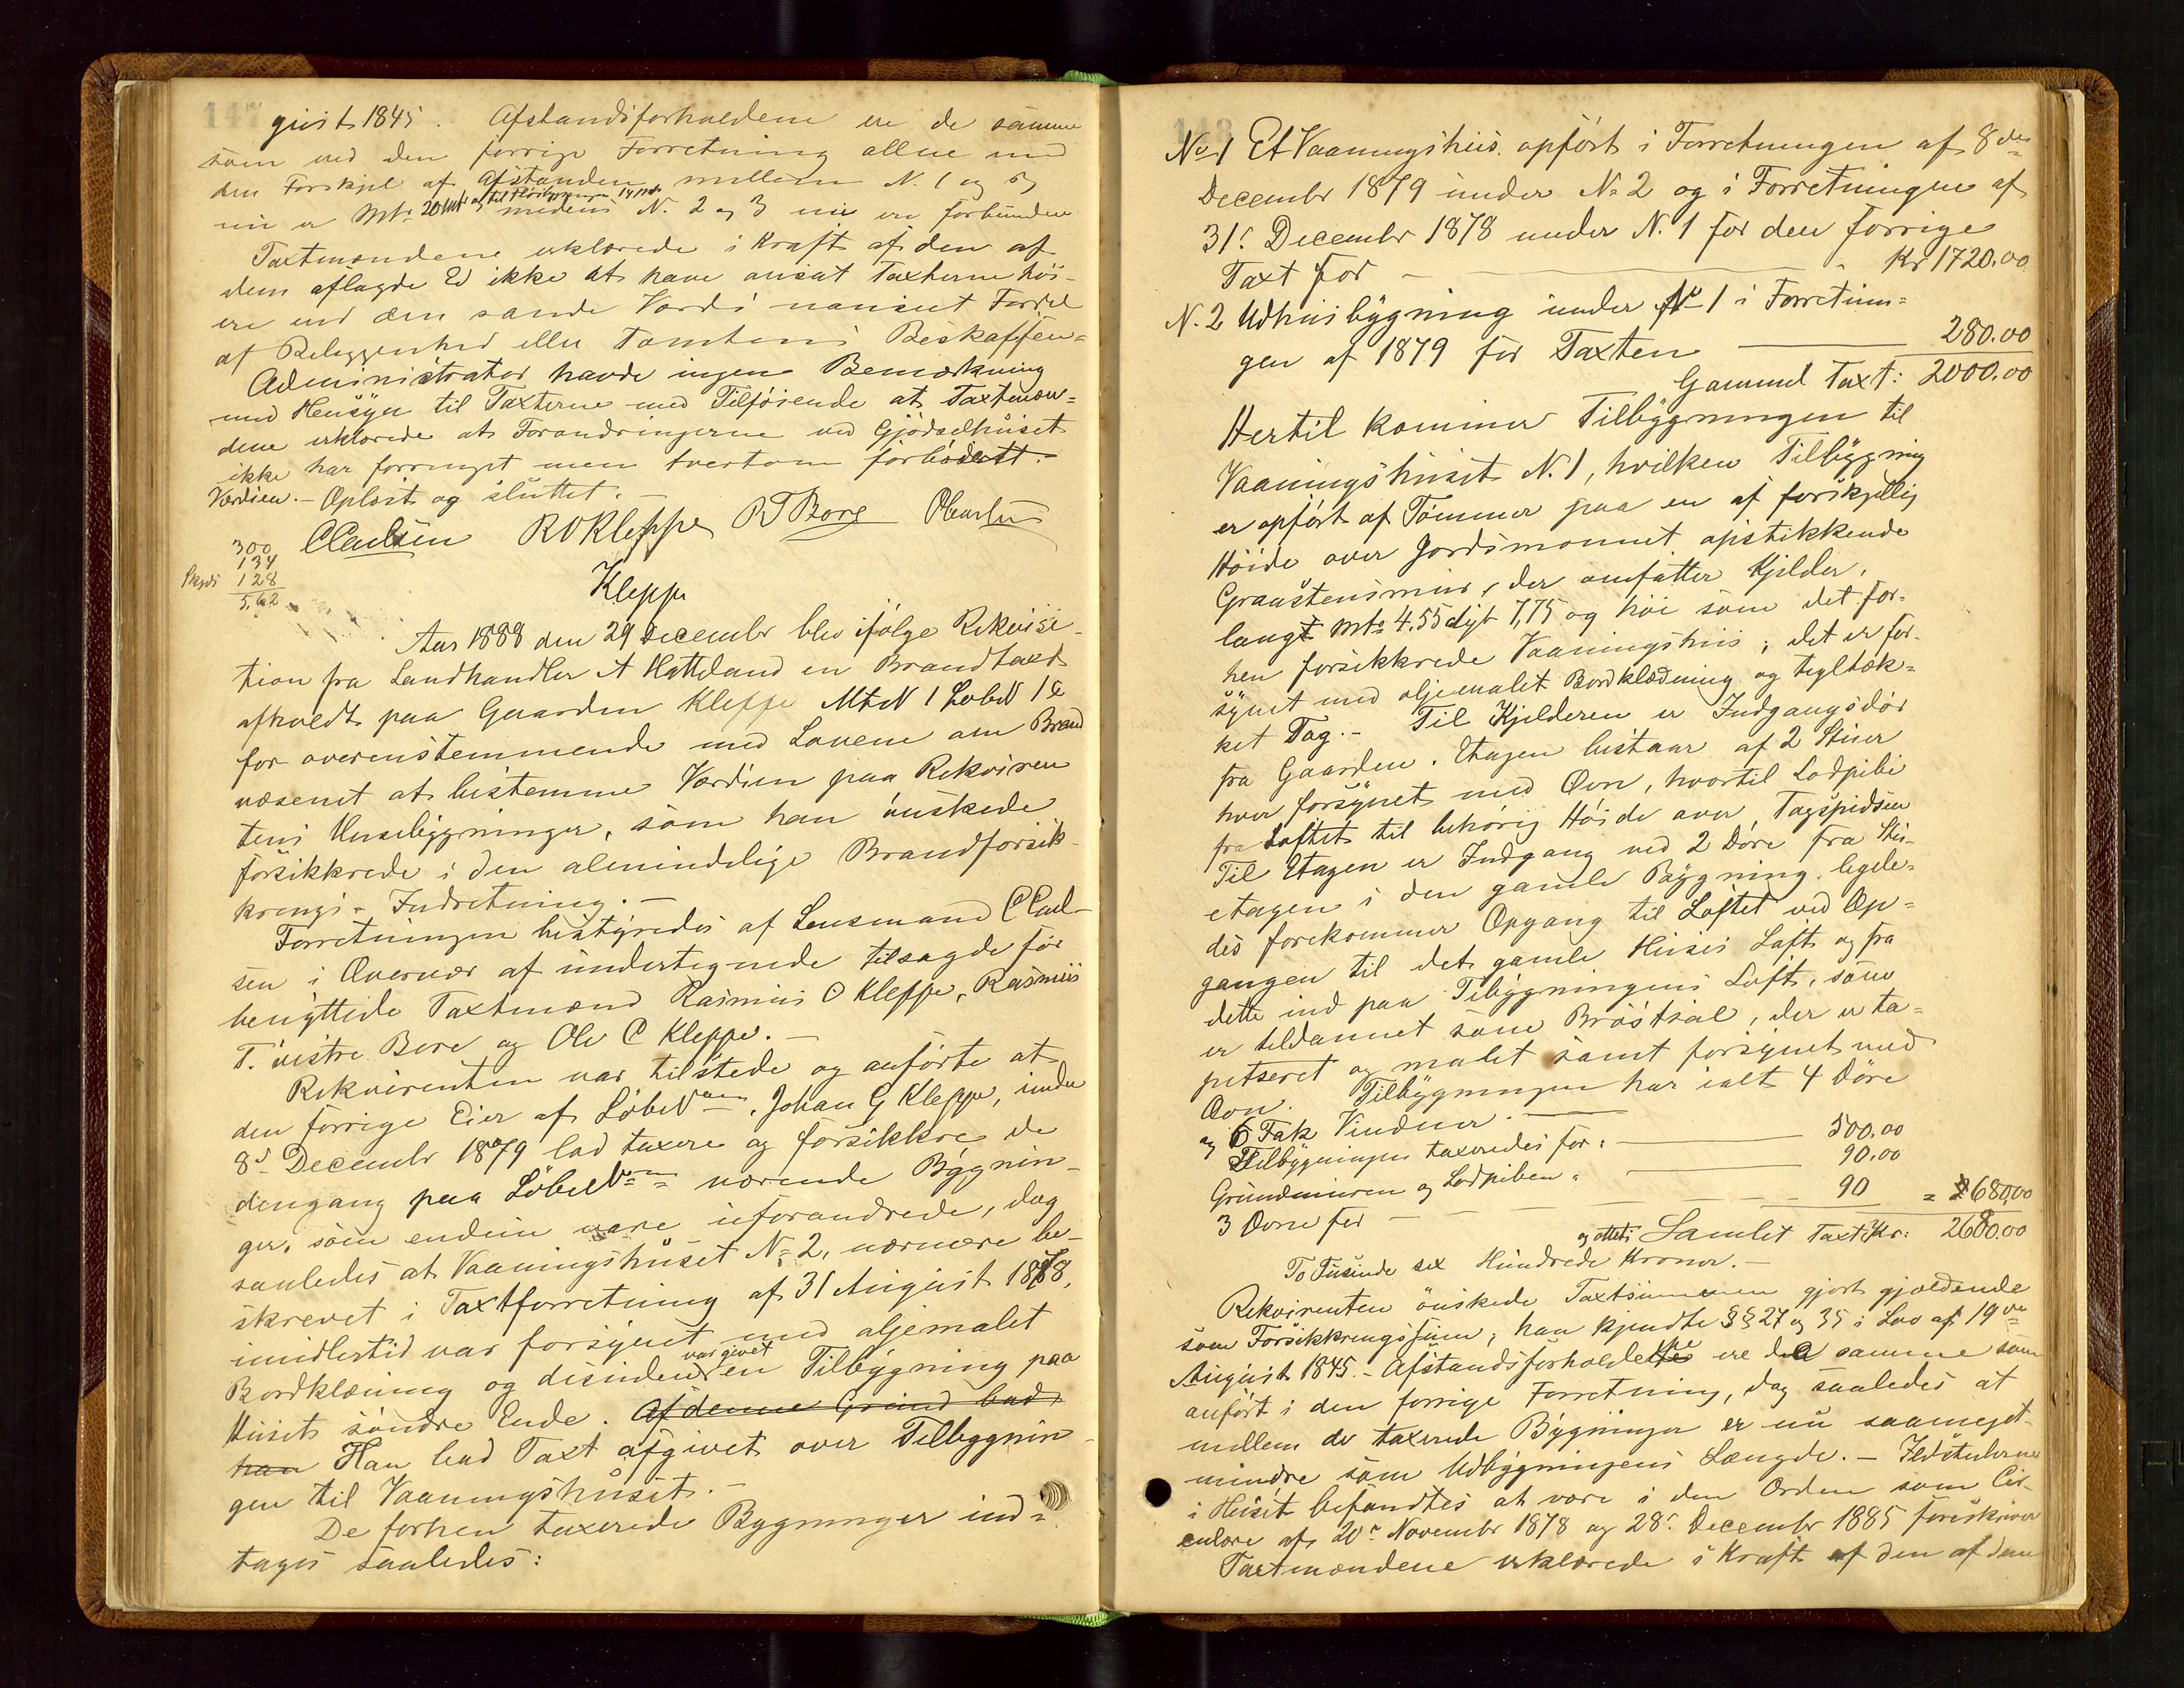 147
gust 1845. Afstandsforholdene ere de samme
som ved den forrige Forretning allene med
den Forskjel at Afstanden mellem N. 1 og
nu er Mtr 20 medens N. 2 og 3 nu ere forbundne
Taxtmændene erklærede i Kraft af den af
dem aflagde Ed ikke at have ansat Taxterne høi-
ere end den sande Værdi uanseet Fordel
af Beliggenhed eller Tomtens Beskaffen=
Administrator havde ingen Bemærkning
med Hensyn til Taxterne med Tilføiende at Taxtmæn=
dene erklærede at Forandringerne ved Gjødselhuset
ikke har forringet men tvertom forbedrett
Værdien. - Oplæst og sluttet. -
CClausen ROKleppe RTBore
300
134
Skyds 128
5,62
Kleppe
Aar 1888 den 29 December blev ifølge Rekvisi-
tion fra Landhandler A Hatteland en Brandtaxt
afholdt paa Gaarden Kleppe MtN 1 LøbeN 1
for overenstemmende med Lovene om Brand
væsenet at bestemme Værdien paa Rekviren
tens Husebygninger, som han ønskede
forsikkrede i den almindelige Brandforsik-
krings-Indretning. -
Forretningen bestyredes af Lensmand CClau-
sen i Overvær af undertegnede tilsagde før
benyttede Taxtmænd Rasmus O Kleppe, Rasmus
T. østre Bore og Ole C Kleppe. -
Rekvirenten var tilstede og anførte at
den forrige Eier af LøbeN Johan G Kleppe, under
8d December 1879 lod taxere og forsikkre de
dengang paa LøbeN værende Bygnin-
ger, som endnu vare uforandrede, dog
saaledes at Vaaningshuset N=2, nærmere be-
skrevet i Taxtforretning af 31 August 1878,
imidlertid var forsynet med oljemalet
Bordklæning og desuden var givet en Tilbygning paa
Husets søndre Ende. Af denne Grund bad
han Han bad Taxt afgivet over Tilbygnin
gen til Vaaningshuset. -
De forhen taxerede Bygninger ind=
tages saaledes:
148
No 1 Et Vaaningshus opført i Forretningen af 8de
December 1879 under N=2 og i Forretningen af
31. December 1878 under N. 1 for den forrige
Taxt for - Kr 1720.00
N. 2 Udhusbygning under No 1 i Forretnin=
gen af 1879 for Taxten 280.00
Gammel Taxt: 2000.00
Hertil kommer Tilbygningen til
Vaaningshuset N. 1, hvilken Tilbygning
er opført af Tømmer paa en af forskjellig
Høide over Jordsmonnet opstikkende
Graastensmur, der omfatter Kjelder,
langt Mtr 4.55 dybt 7,75 og høi som det for-
hen forsikkrede Vaaningshus; det er for-
synet med oljemalet Bordklædning og tegltæk=
ket Tag. - Til Kjelderen er Indgangsdør
fra Gaarden. Etagen bestaar af 2 Stuer
hver forsynet med Ovn, hvortil Lodpibe
fra Loftet til behørig Høide over Tagspidsen
Til Etagen er Indgang ved 2 Døre fra Stu-
etagen i den gamle Bygning ligele=
des forekommer Opgang til Loftet ved Op=
gangen til det gamle Huses Loft og fra
dette ind paa Tilbygningens Loft, som
er tildannet som Brøstsal, der er ta=
petseret og malet samt forsynet med
Ovn. Tilbygningen har ialt 4 Døre
og 6 Fak Vinduer
Tilbygningen taxeredes for: 500.00
Grundmuren og Lodpiben: 90.00
3 Ovne for 90 = 680,00
og otteti Samlet Taxt Kr: 2680.00
To Tusinde sex Hundrede Kroner. -
Rekvirenten ønskede Taxtsummen gjort gjældende
som Forsikkringssum; han kjendte §§ 27 og 35 i Lov af 19de
August 1845. - Afstandsforholdene ere de samme som
anført i den forrige Forretning, dog saaledes at
mellem de taxerede Bygninger er nu saameget
mindre som Udbygningens Længde. - Ildstederne
i Huset befandtes at være i den Orden som Cir-
culære af 20. November 1878 og 28. December 1885 foreskriver
Taxtmændene erklærede i Kraft af den af dem